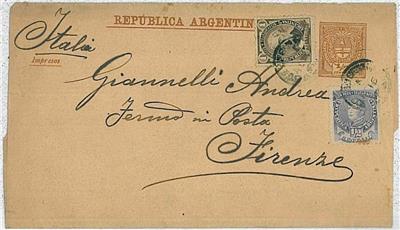 REPÚBLICA ARGENTIN
Italia
Impresos
Giannelli Andrea
Fermo in Posta
Firenze